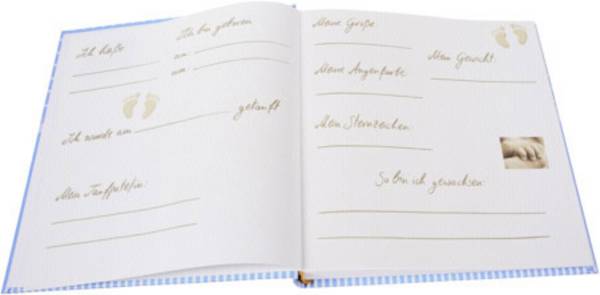 Ich heiße
Ich bin geboren
am:
um:
Ich wurde am getauft
Mein Taufpate/in:
Meine Größe
Mein Gewicht:
Meine Augenfarbe
Mein Sternzeichen:
So bin ich gewachsen: